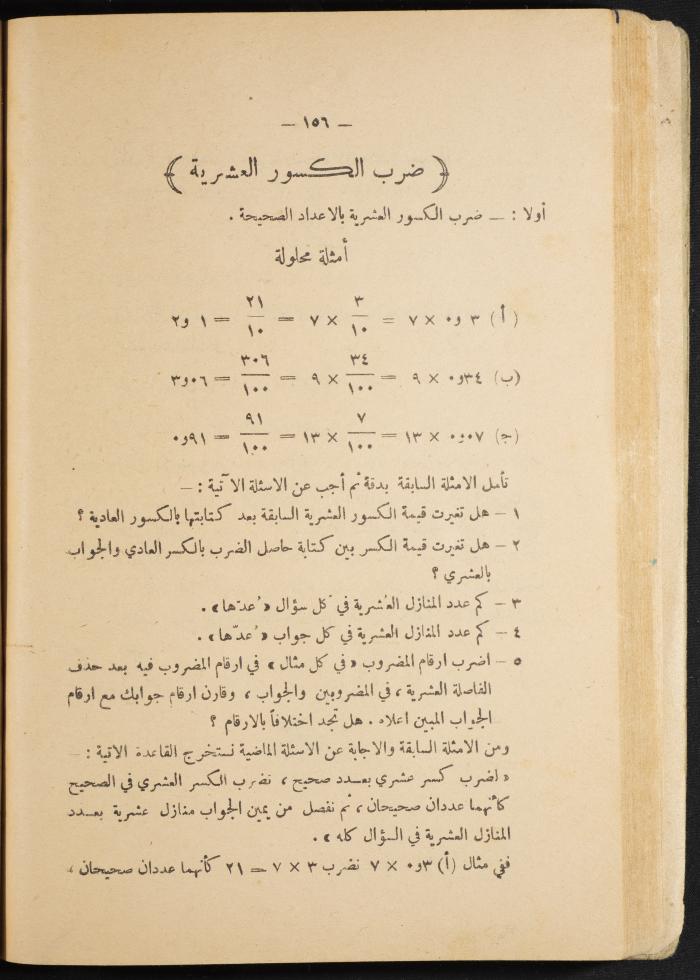 — ١٥٦ —
﴿ ضرب الكسور العشرية ﴾
أولا : — ضرب الكسور العشرية بالاعداد الصحيحة .
أمثلة محلولة
( أ ) ٣ و٠ × ٧ = ٣/١٠ × ٧ = ٢١/١٠ = ١ و٢
(ب) ٣٤و٠ × ٩ = ٣٤/١٠٠ × ٩ = ٣٠٦/١٠٠ = ٠٦و٣
(ج) ٠٧و٠ × ١٣ = ٧/١٠٠ × ١٣ = ٩١/١٠٠ = ٩١و٠
تأمل الامثلة السابقة بدقة ثم أجب عن الاسئلة الآتية : —
١ — هل تغيرت قيمة الكسور العشرية السابقة بعد كتابتها بالكسور العادية ؟
٢ — هل تغيرت قيمة الكسر بين كتابة حاصل الضرب بالكسر العادي والجواب
بالعشري ؟
٣ — كم عدد المنازل العشرية في كل سؤال « عدّها » .
٤ — كم عدد المنازل العشرية في كل جواب « عدّها » .
٥ — اضرب ارقام المضروب « في كل مثال » في ارقام المضروب فيه بعد حذف
الفاصلة العشرية ، في المضروبين والجواب ، وقارن ارقام جوابك مع ارقام
الجواب المبين اعلاه . هل تجد اختلافاً بالارقام ؟
ومن الامثلة السابقة والاجابة عن الاسئلة الماضية نستخرج القاعدة الاتية : —
« لضرب كسر عشري بعدد صحيح ، نضرب الكسر العشري في الصحيح
كأنهما عددان صحيحان ، ثم نفصل من يمين الجواب منازل عشرية بعدد
المنازل العشرية في السؤال كله » .
ففي مثال (أ) ٣و٠ × ٧ نضرب ٣ × ٧ = ٢١ كأنهما عددان صحيحان ،